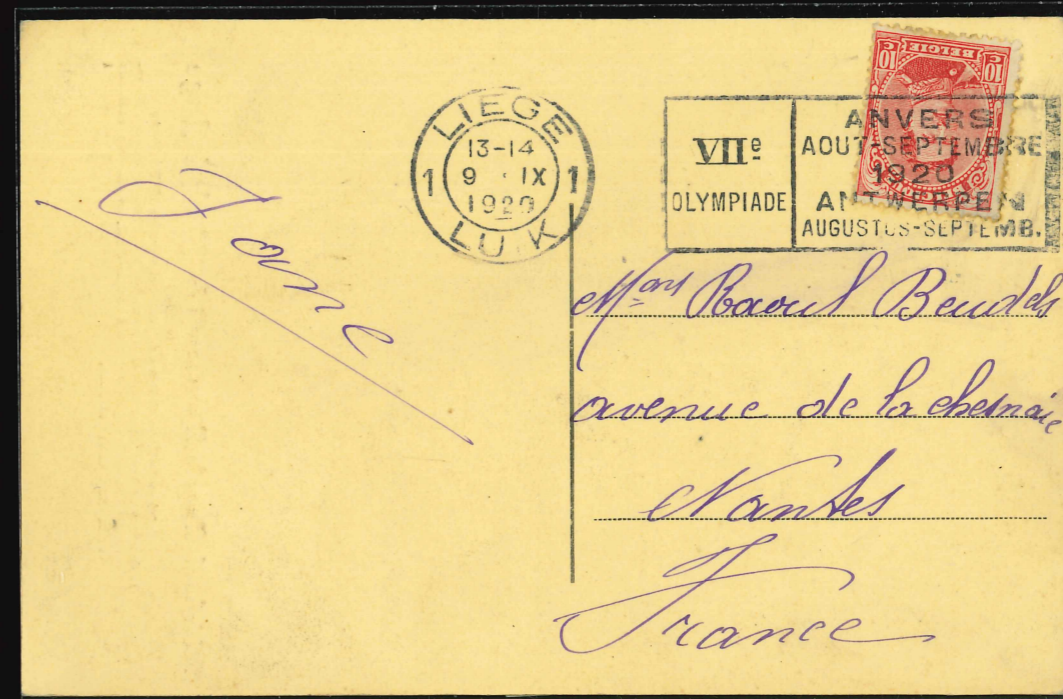 LIEGE
1 13-14 1
9 · IX
1920
LUIK
VIIe
OLYMPIADE
ANVERS
AOUT-SEPTEMBRE
1920
ANTWERPEN
AUGUSTUS-SEPTEMB.
10 BELGIE 10
C C
Mons Raoul
avenue de la chesnaie
Nantes
France